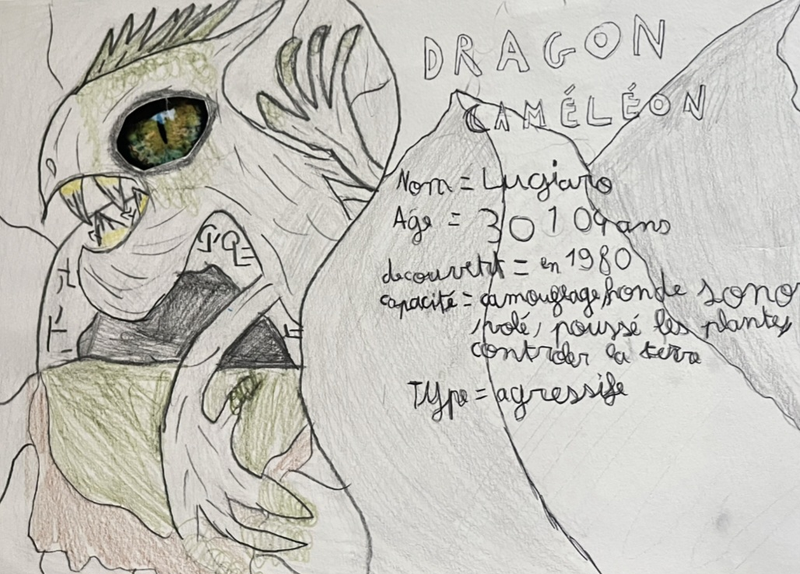 DRAGON
CAMÉLÉON
Nom = Lugiaro
Age = 30 109 ans
decouvert = en 1980
capacité = camouflage, honde sono
, volé, poussé les plantes,
controler la terre
Type = agressife